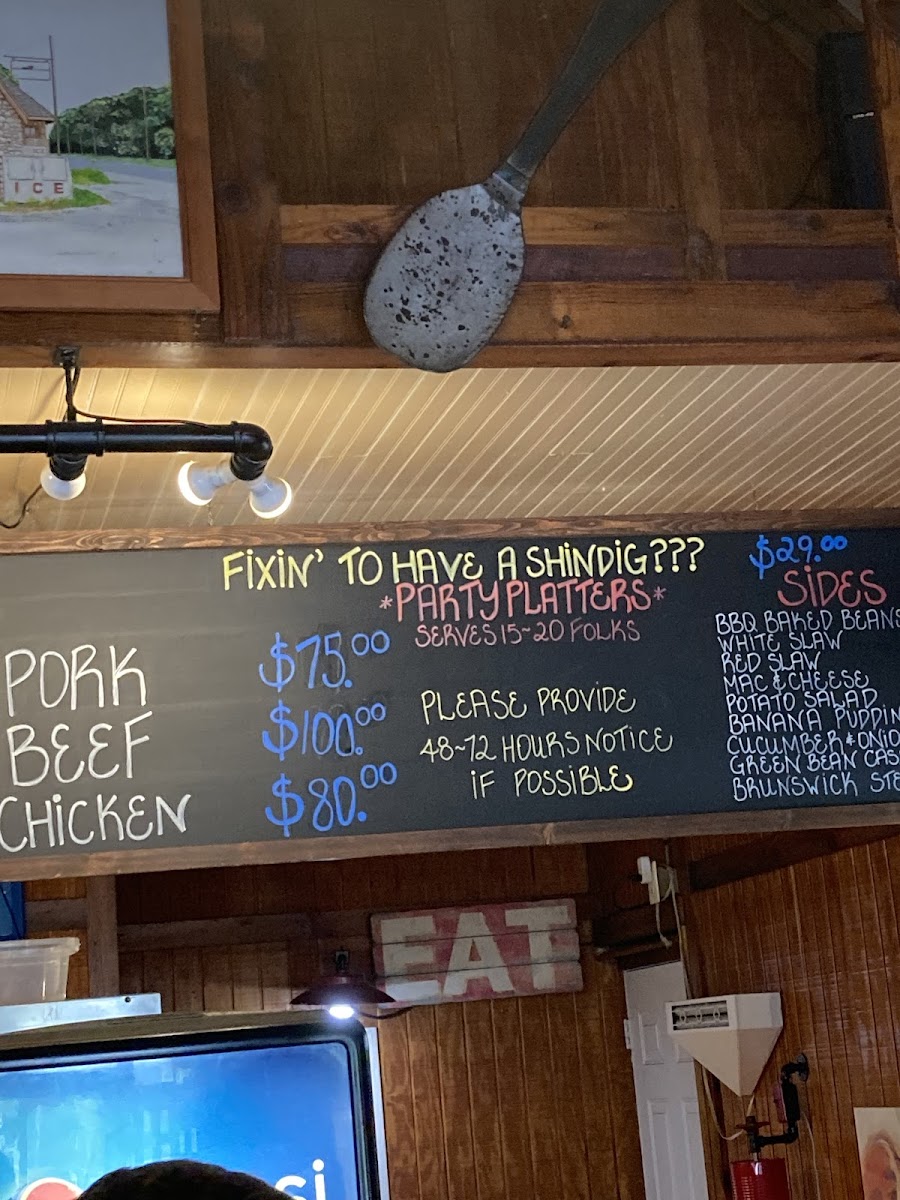 ICE
FIXIN' TO HAVE A SHINDIG???
*PARTY PLATTERS*
SERVES 15~20 FOLKS
PORK $75.00
BEEF $100.00
CHICKEN $80.00
PLEASE PROVIDE
48~72 HOURS NOTICE
IF POSSIBLE
$29.00
SIDES
BBQ BAKED BEANS
WHITE SLAW
RED SLAW
MAC & CHEESE
POTATO SALAD
BANANA PUDDIN
CUCUMBER & ONIO
GREEN BEAN CAS
BRUNSWICK STE
EAT
si